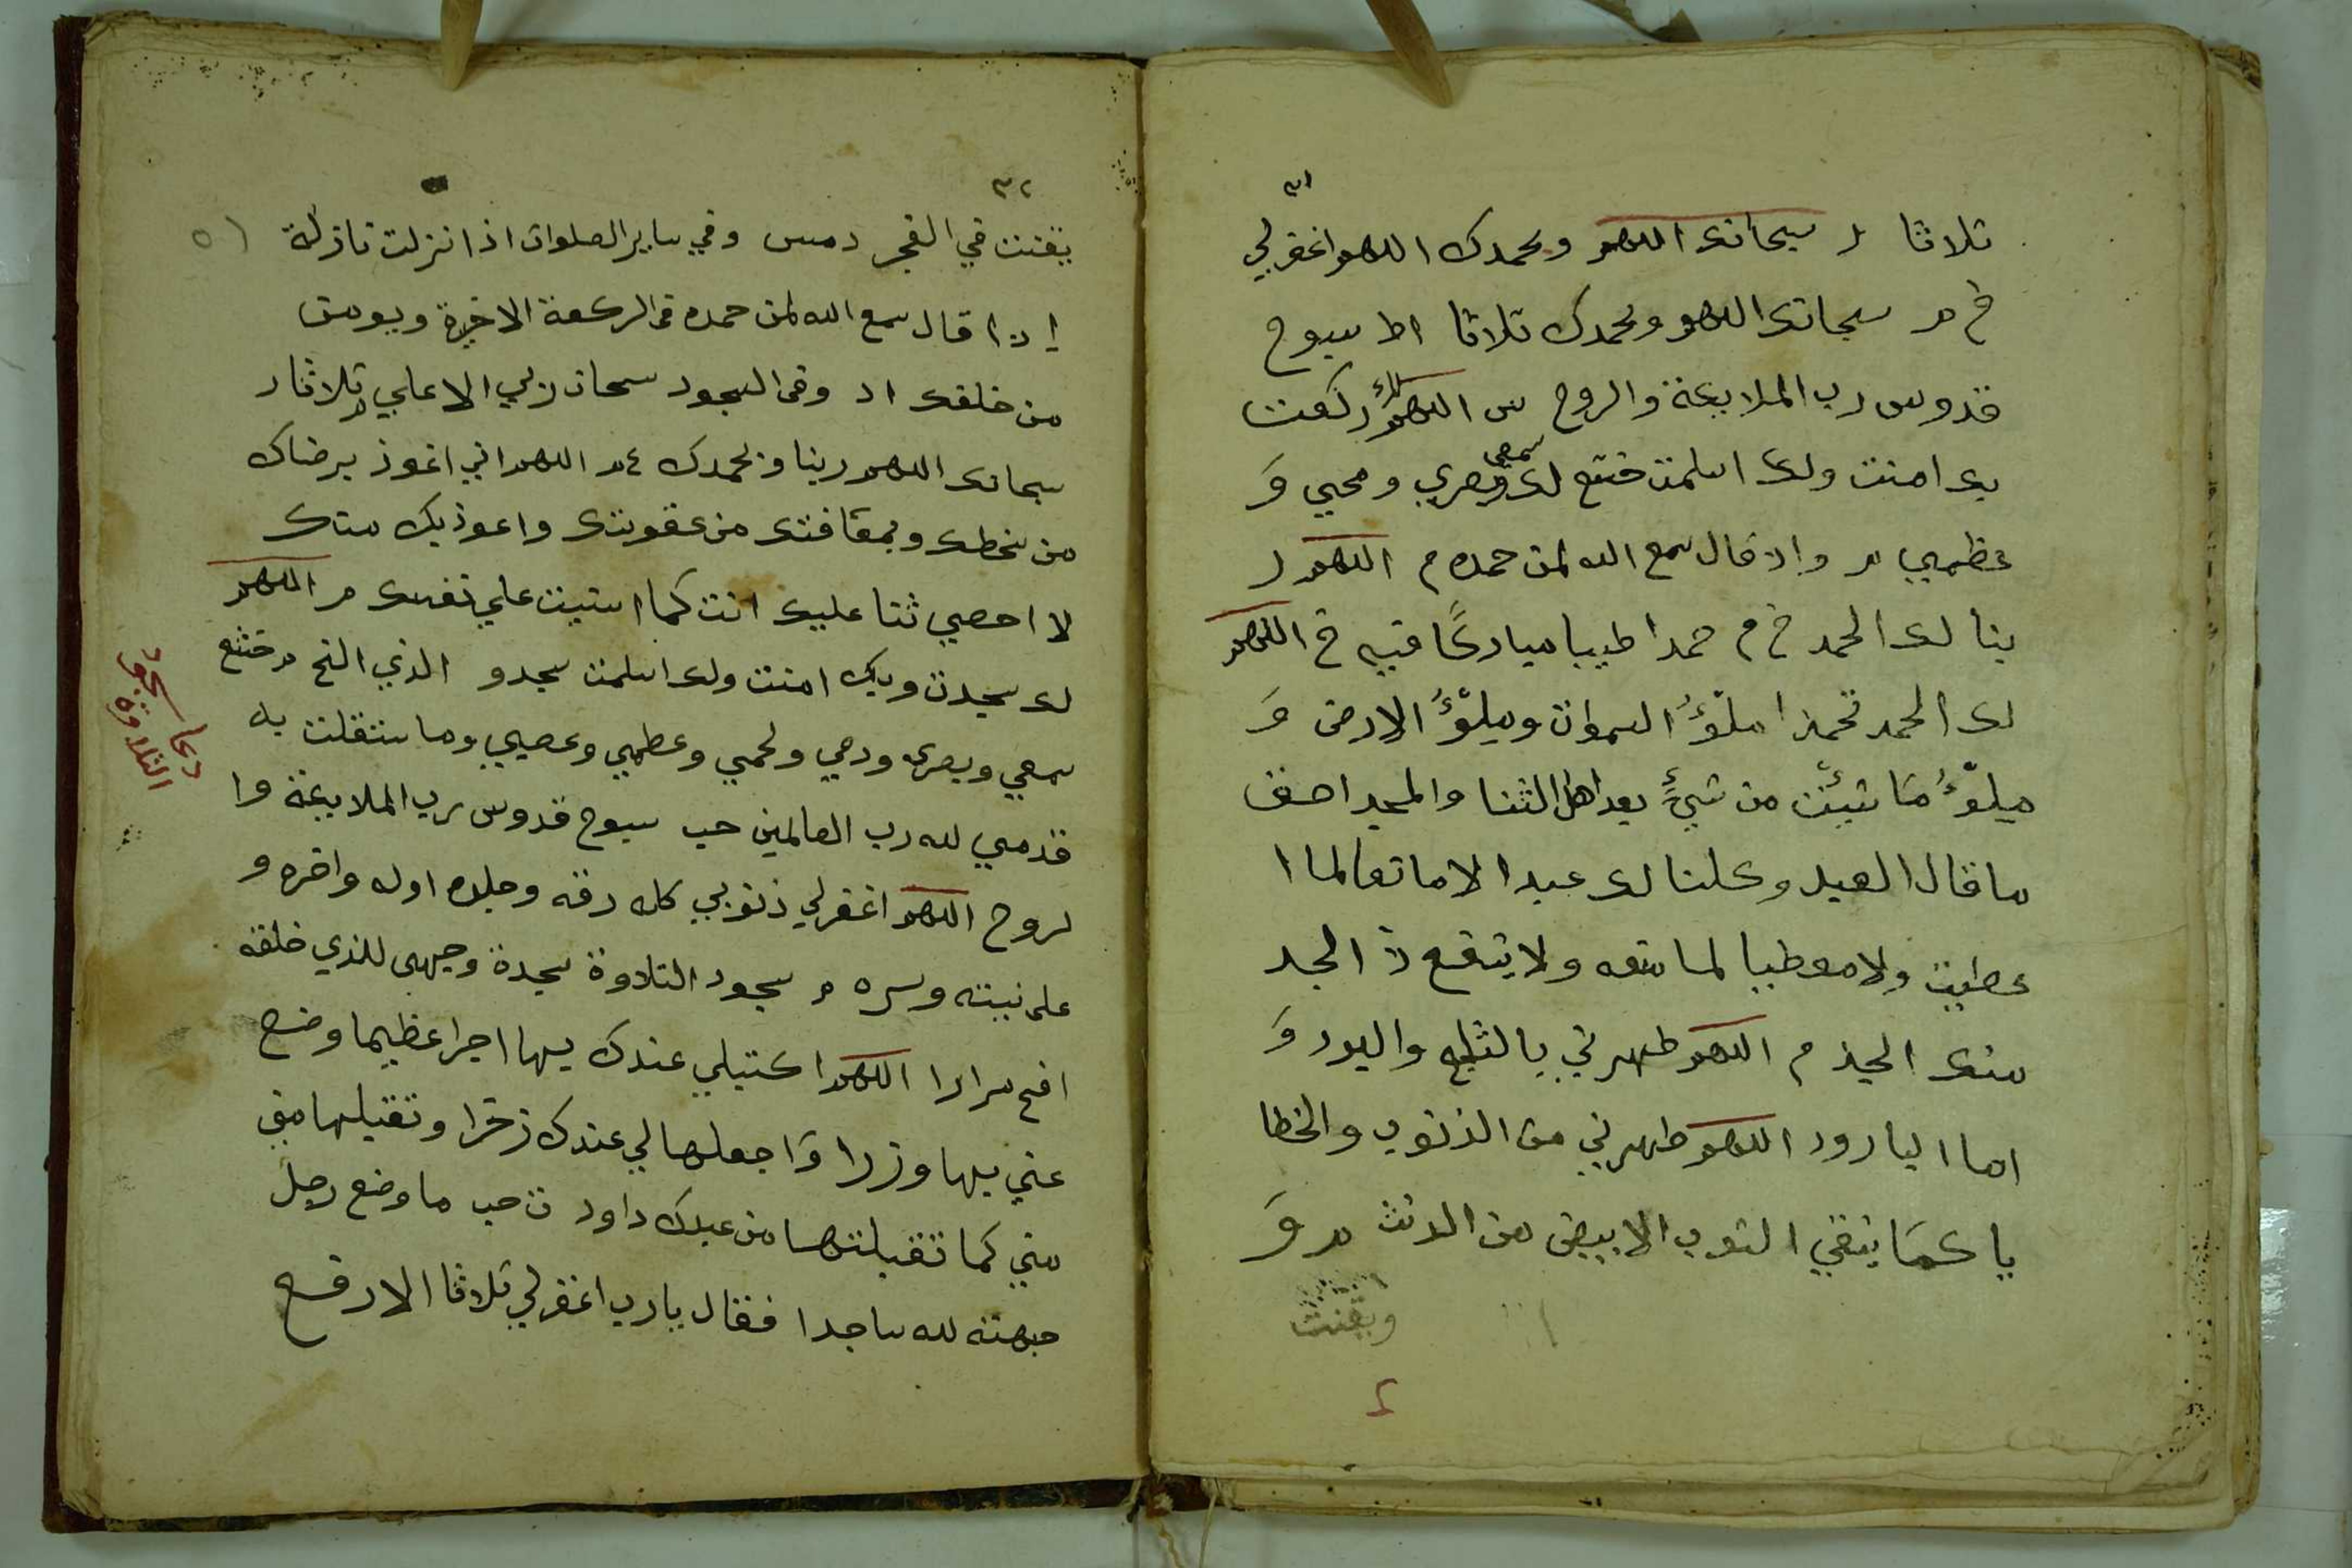 ٣١
ثلاثا ر سبحانك اللهم وبحمدك اللهم اغفرلي
خ م سبحانك اللهم وبحمدك ثلاثا اط سبوح
قدوس رب الملايكة والروح س اللهم لك ركعت
بك امنت ولك اسلمت خشع لك سمعي وبصري ومخي و
عظمي م واذ قال سمع الله لمن حمده م اللهم ر
بنا لك الحمد خ م حمدا طيبا مباركا فيه خ اللهم
لك الحمد حمدا ملؤ السموات وملؤ الارض و
ملؤ ما شئت من شيء بعد اهل الثنا والمجد احق
ما قال العبد وكلنا لك عبد الا مانعا لما ا
عطيت ولا معطيا لما منعه ولا ينفع ذ الجد
منك الجد م اللهم طهرني بالثلج والبرد و
الما البارد اللهم طهرني من الذنوب والخطا
يا كما ينقي الثوب الابيض من الدنث م و
ويقنت
٢
٣٢
يقنت في الفجر دمس وفي ساير الصلوات اذا نزلت نازلة
اذا قال سمع الله لمن حمده في الركعة الاخيرة ويومن
من خلفه اد وفي السجود سبحان ربي الاعلي ثلاثا ر
سبحانك اللهم ربنا وبحمدك ع م اللهم اني اعوذ برضاك
من سخطك وبمعافتك من عقوبتك واعوذ بك منك
لا احصي ثنا عليك انت كما اثنيت علي نفسك م اللهم
لك سجدت وبك امنت ولك اسلمت سجد و الذي الخ م خشع
سمعي وبصري ودمي ولحمي وعظمي وعصبي وما استقلت به
قدمي لله رب العالمين حب سبوح قدوس رب الملايكة وا
لروح اللهم اغفرلي ذنوبي كله دقه وجله اوله واخره و
علانيته وسره م سجود التلاوة سجدة وجهي للذي خلقه
الخ مرارا اللهم اكتبلي عندك بها اجرا عظيما وضع
عني بها وزرا واجعلها لي عندك زخرا وتقبلها مني
مني كما تقبلتها من عبدك داود ت حب ما وضع رجل
جبهته لله ساجدا فقال يارب اغفرلي ثلاثا الا رفع
دعا سجود
التلاوة